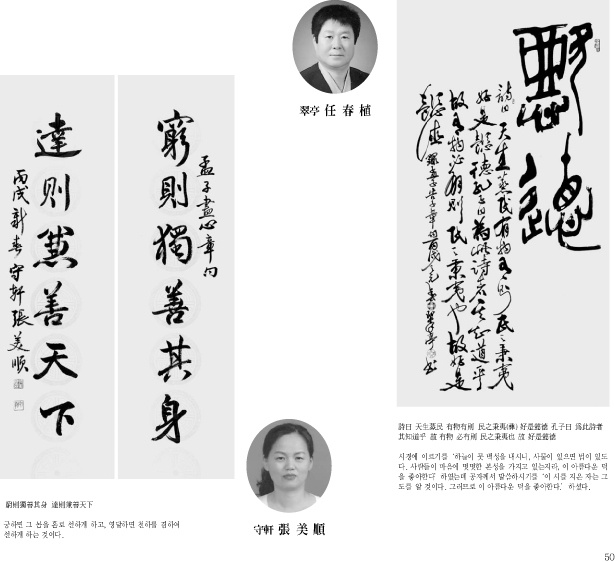 窮則獨善其身
孟子盡心章句
達則兼善天下
丙戌新春 守軒 張美順
窮則獨善其身 達則兼善天下
궁하면 그 몸을 홀로 선하게 하고, 영달하면 천하를 겸하여
선하게 하는 것이다.
翠亭 任春植
守軒 張美順
懿德
詩曰 天生蒸民 有物有則 民之秉夷
好是懿德 孔子曰 爲此詩者 其知道乎
故有物必有則 民之秉夷也 故好是
懿德
詩曰 天生蒸民 有物有則 民之秉夷(彝) 好是懿德 孔子曰 爲此詩者
其知道乎 故 有物 必有則 民之秉夷也 故 好是懿德
시경에 이르기를 '하늘이 뭇 백성을 내시니, 사물이 있으면 법이 있도
다. 사람들이 마음에 떳떳한 본성을 가지고 있는지라, 이 아름다운 덕
을 좋아한다' 하였는데 공자께서 말씀하시기를 '이 시를 지은 자는 그
도를 알 것이다. 그러므로 이 아름다운 덕을 좋아한다.' 하셨다.
50